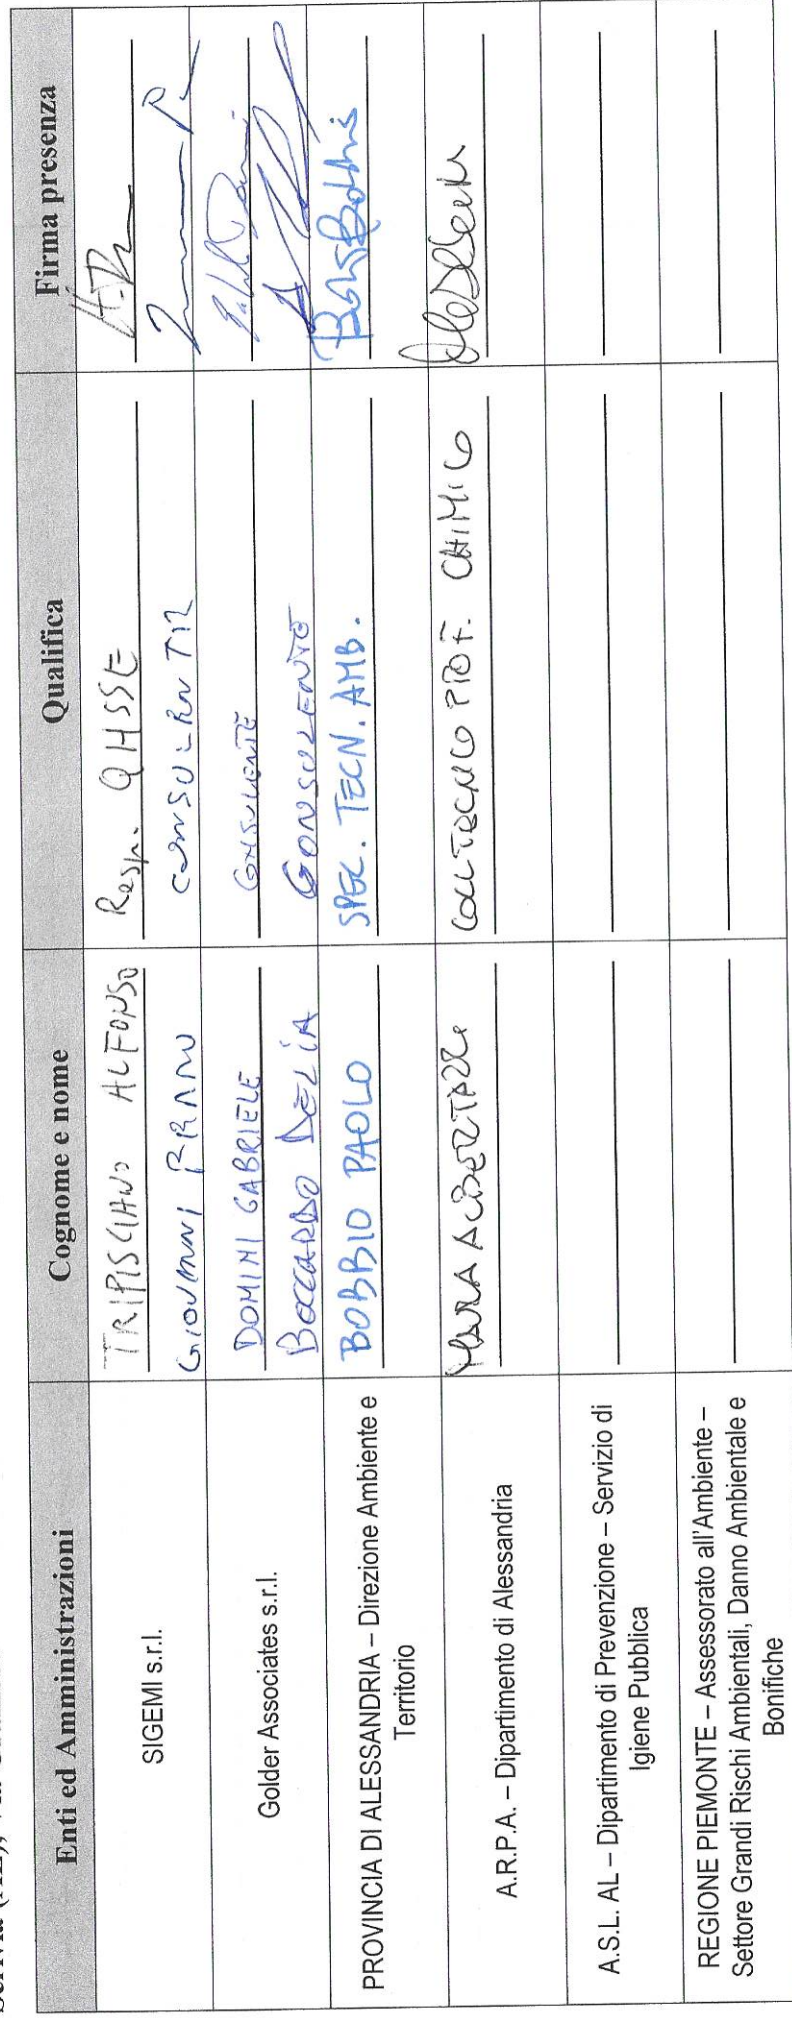 Enti ed Amministrazioni Cognome e nome Qualifica Firma presenza
SIGEMI s.r.l. TRIPISCIANO ALFONSO Resp. QHSSE
GIOVANNI
Golder Associates s.r.l. DOMINI GABRIELE CONSULENTE
BOCCARDO DELIA CONSULENTE
PROVINCIA DI ALESSANDRIA – Direzione Ambiente e
Territorio
BOBBIO PAOLO SPEC. TECN. AMB.
A.R.P.A. – Dipartimento di Alessandria COLL TECNICO PROF. CHIMICO
A.S.L. AL – Dipartimento di Prevenzione – Servizio di
Igiene Pubblica
REGIONE PIEMONTE – Assessorato all'Ambiente –
Settore Grandi Rischi Ambientali, Danno Ambientale e
Bonifiche